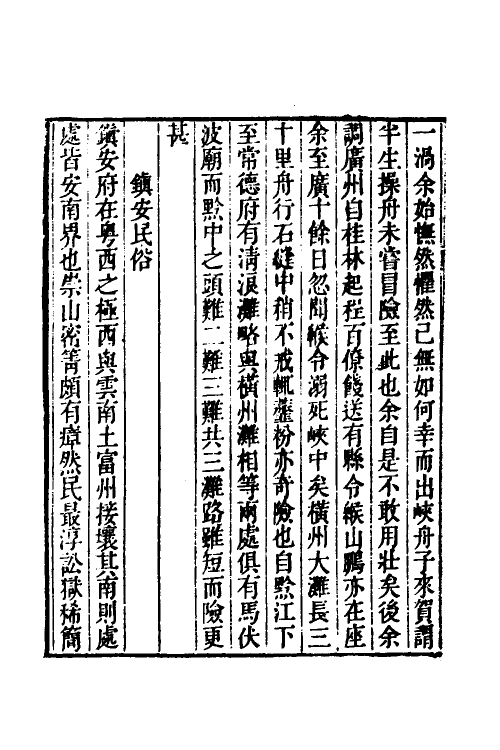 一渦余始憮然懼然已無如何幸而出峽舟子來賀謂
半生操舟未嘗冒險至此也余自是不敢用壯矣後余
調廣州自桂林起程百僚餞送有縣令緱山鵬亦在座
余至廣十餘日忽聞緱令溺死峽中矣橫州大灘長三
十里舟行石縫中稍不戒輒虀粉亦奇險也自黔江下
至常德府有淸浪灘略與橫州灘相等兩處俱有馬伏
波廟而黔中之頭難二難三難共三灘路雖短而險更
甚
鎭安民俗
鎭安府在粵西之極西與雲南土富州接壤其南則處
處皆安南界也崇山密箐頗有瘴然民最淳訟獄稀簡